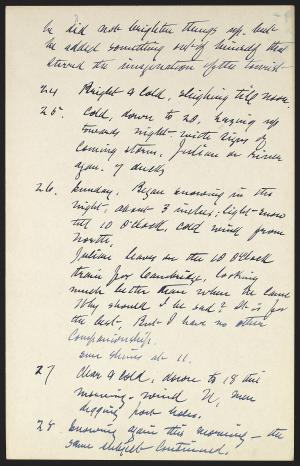 he did not brighten things up, but
he added something out of himself that
stirred the imagination of the tourist
24 Bright & cold, sleighing till noon.
25. Cold, down to 20, hazing up
towards night with signs of
coming storm. Julian on River
again. 7 ducks
26. Sunday. Began snowing in the
night, about 3 inches; light-snow
till 10 o'clock, cold wind from
North,
Julian leaves on the 10 o'clock
train for Cambridge, looking
much better than when he came
Why should I be sad? It is for
the best, But I have no other
Companionship.
sun shines at 11.
27 Clear & cold, down to 18 this
morning. wind N, men
digging post holes.
28 Snowing again this morning — the
same subject continued.